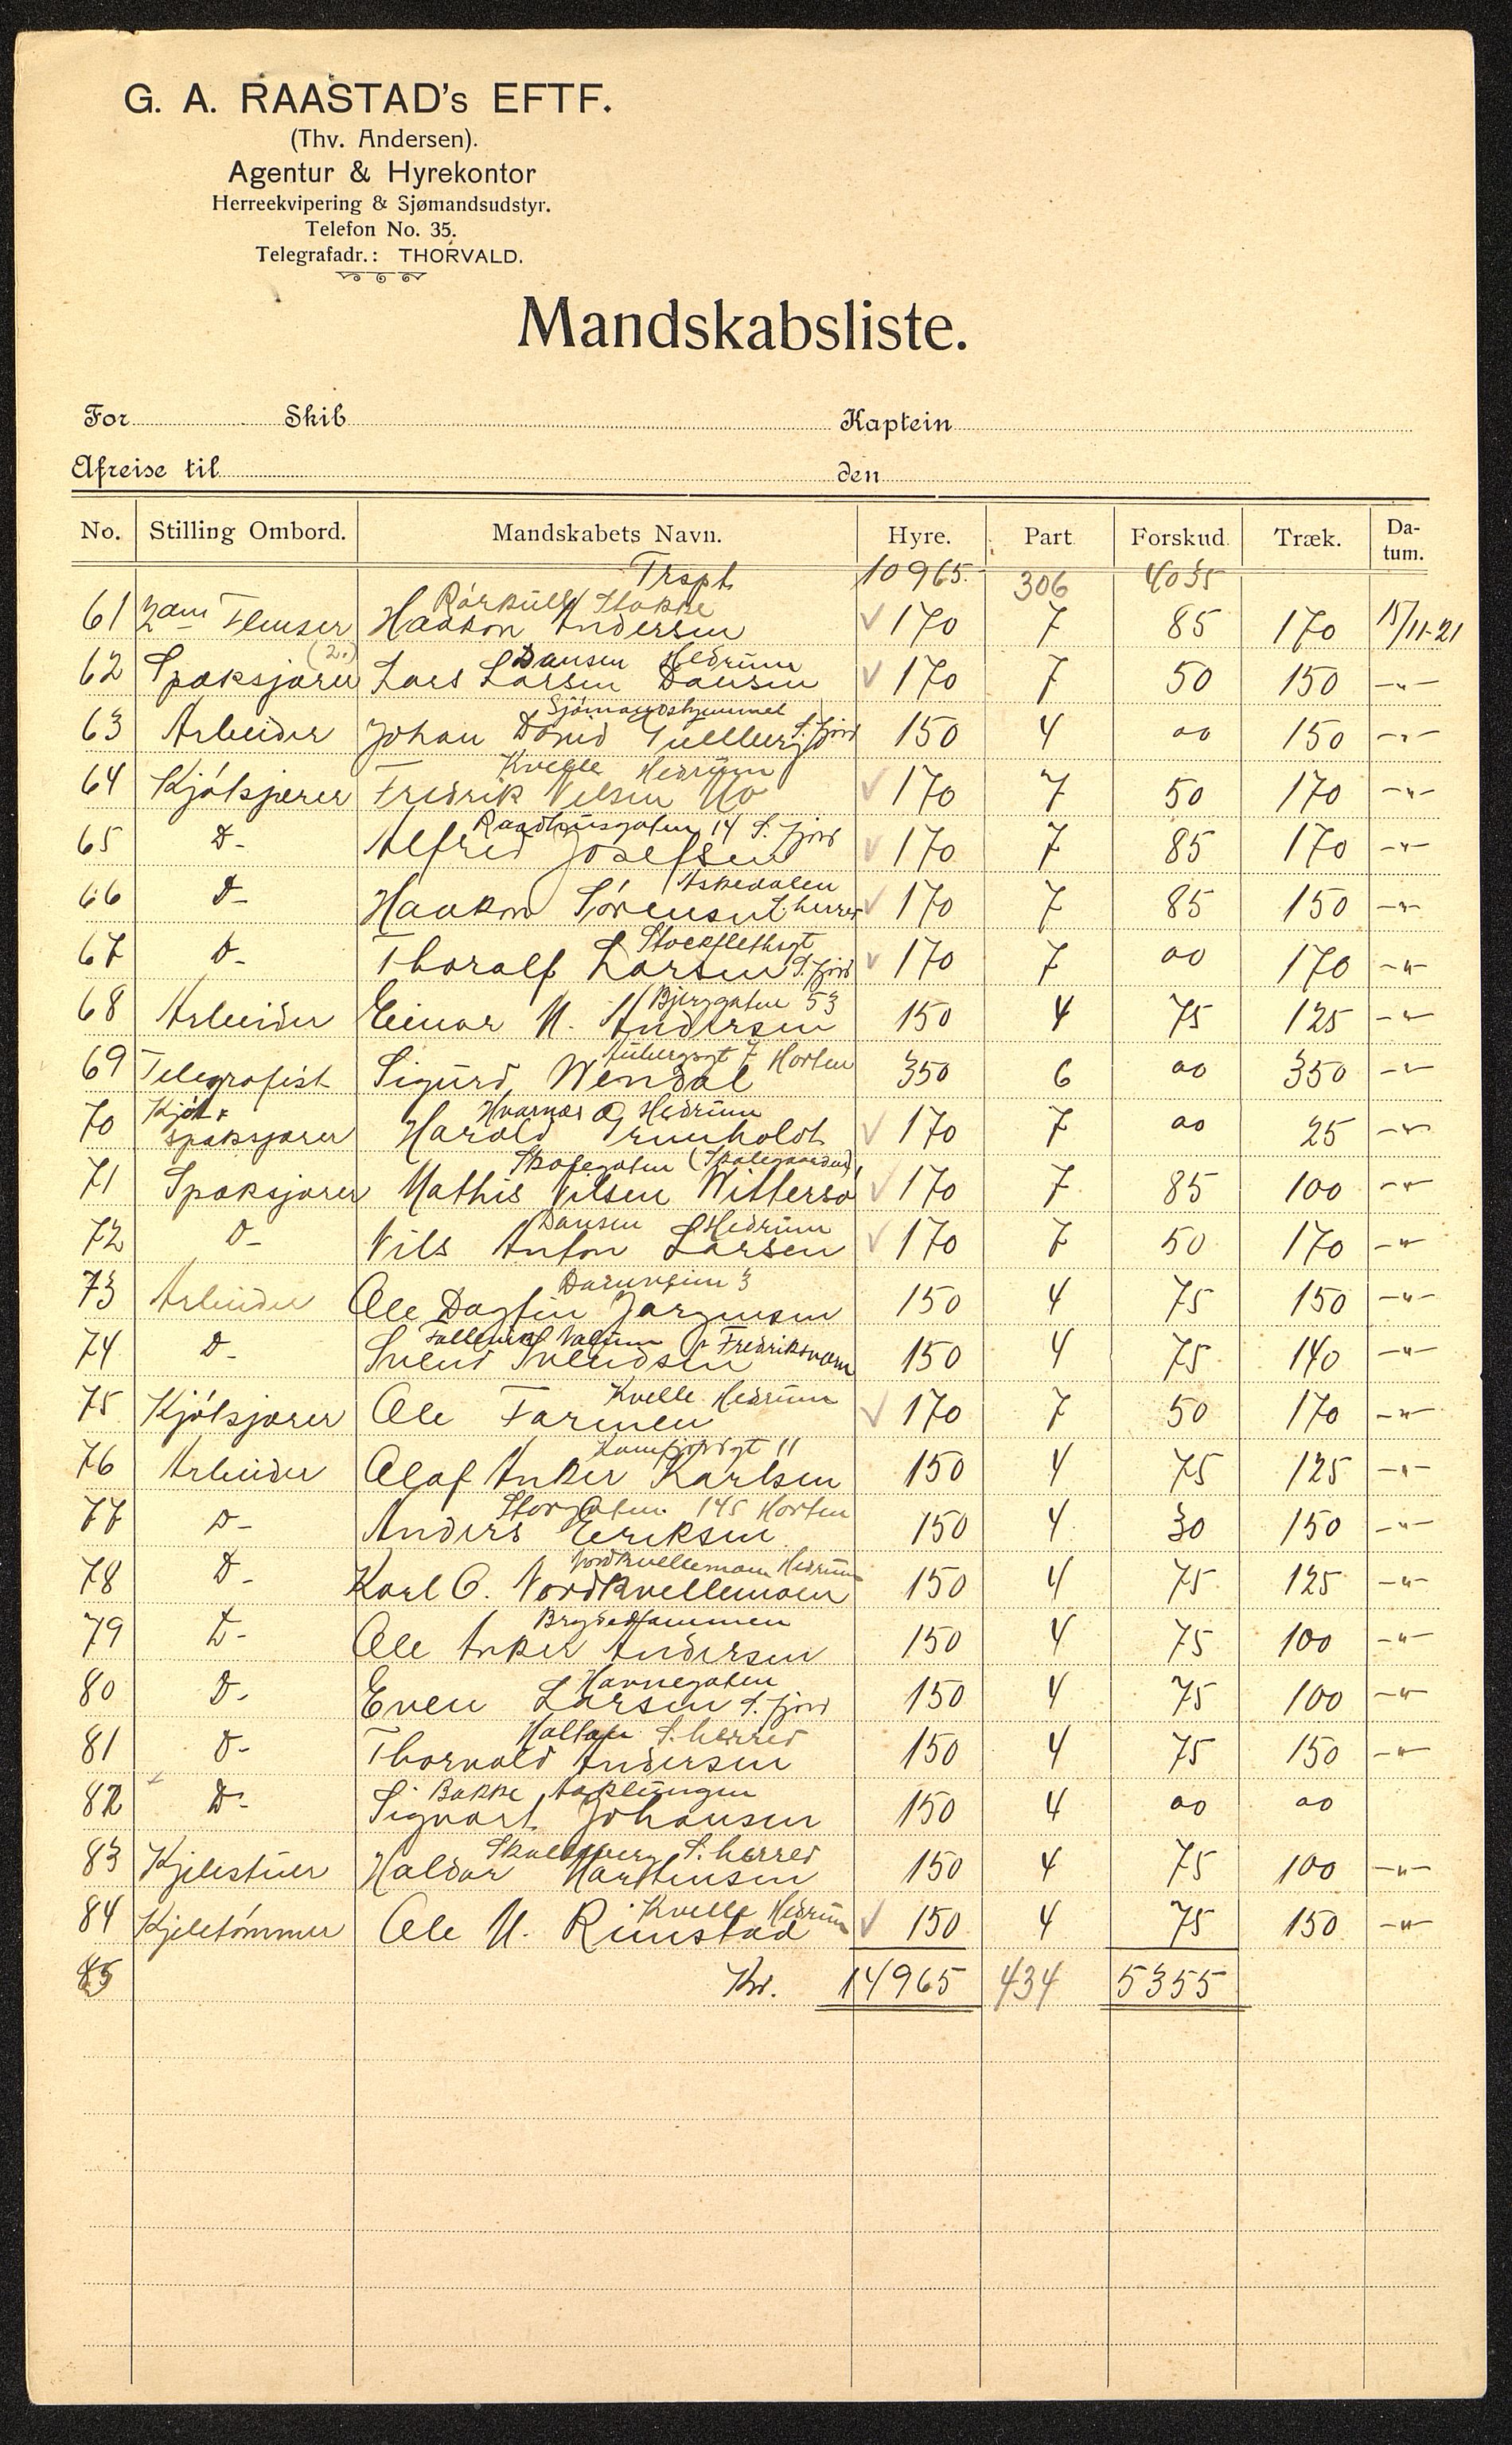 G. A. RAASTAD's EFTF.
(Thv. Andersen).
Agentur & Hyrekontor
Herreekvipering & Sjømandsudstyr.
Telefon No. 35.
Telegrafadr.: THORVALD.
Mandskabsliste.
For Skib Kaptein
Afreise til den
No. Stilling Ombord. Mandskabets Navn. Hyre. Part Forskud. Træk. Da-tum.
Trspt. 10965 306 4035
Stokke
61 2den Flenser Haakon Andersen 170 7 85 170 15/11-21
(2.) Dansen Hedrum
62 Spæksjærer Lars Larsen Dansen 170 7 50 150 -"-
Sjømandshjemmet
63 Arbeider Johan David Gullberg S.fjord 150 4 oo 150 -"-
Kvelle Hedrum
64 Kjötsjærer Fredrik Nilsen Mo 170 7 50 170 -"-
Raadhusgaten 14 S.fjord
65 D- Alfred Josefsen 170 7 85 170 -"-
Askedalen
66 D- Haakon Sörensen S.herred 170 7 85 150 -"-
Stockflethsgt
67 D- Thoralf Larsen S.fjord 170 7 oo 170 -"-
Bjerggaten 53
68 Arbeider Einar M. Andersen 150 4 75 125 -"-
7 Horten
69 Telegrafist Sigurd Wendal 350 6 oo 350 -"-
Kjöt & Hvarnes Hedrum
70 spæksjærer Harald Grunholdt 170 7 oo 25 -"-
71 Spæksjærer Mathis Nilsen Wittersö 170 7 85 100 -"-
Dansen Hedrum
72 D- Nils Anton Larsen 170 7 50 170 -"-
3
73 Arbeider Ole Dagfin Jørgensen 150 4 75 150 -"-
Nalum pr Fredriksværn
74 D- Svend Svendsen 150 4 75 140 -"-
Kvelle Hedrum
75 Kjötsjærer Ole Farmen 170 7 50 170 -"-
Kamfjordgt 11
76 Arbeider Olaf Anker Karlsen 150 4 75 125 -"-
Storgaten 145 Horten
77 D- Anders Eriksen 150 4 30 150 -"-
Nordkvellemoen Hedrum
78 D- Karl O. Nordkvellemoen 150 4 75 125 -"-
Brydedammen
79 D- Ole Anker Andersen 150 4 75 100 -"-
Havnegaten
80 D- Even Larsen S.fjord 150 4 75 100 -"-
Haltan S.herred
81 D- Thorvald Andersen 150 4 75 150 -"-
Bakke Aaklungen
82 D- Sigvart Johansen 150 4 oo oo
S.herred
83 Kjelestuer Haldor Marthinsen 150 4 75 100 -"-
Kvelle Hedrum
84 Kjeletömmer Ole M. Rimstad 150 4 75 150 -"-
85 Kr. 14965 434 5355